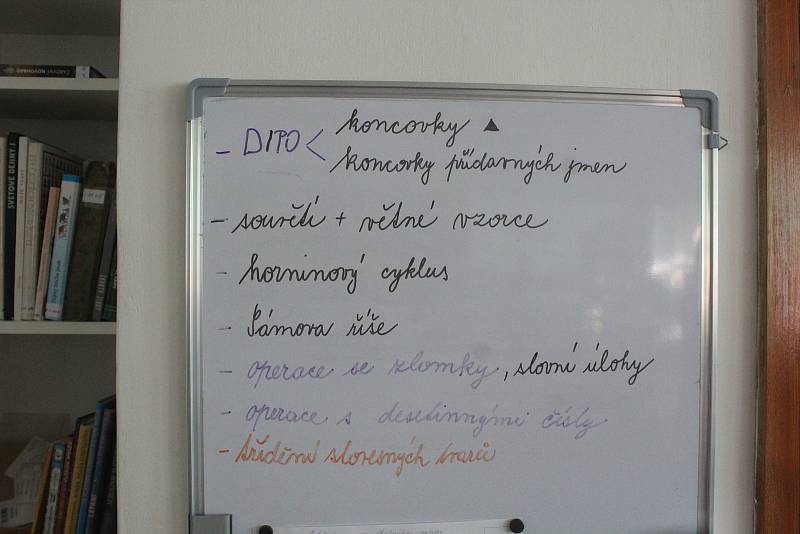 - DIPO < koncovky ▲
koncovky přídavných jmen
- souvětí + větné vzorce
- horninový cyklus
- Sámova říše
- operace se zlomky, slovní úlohy
- operace s desetinnými čísly
- třídění slovesných tvarů
SVĚTOVÉ DĚJINY I